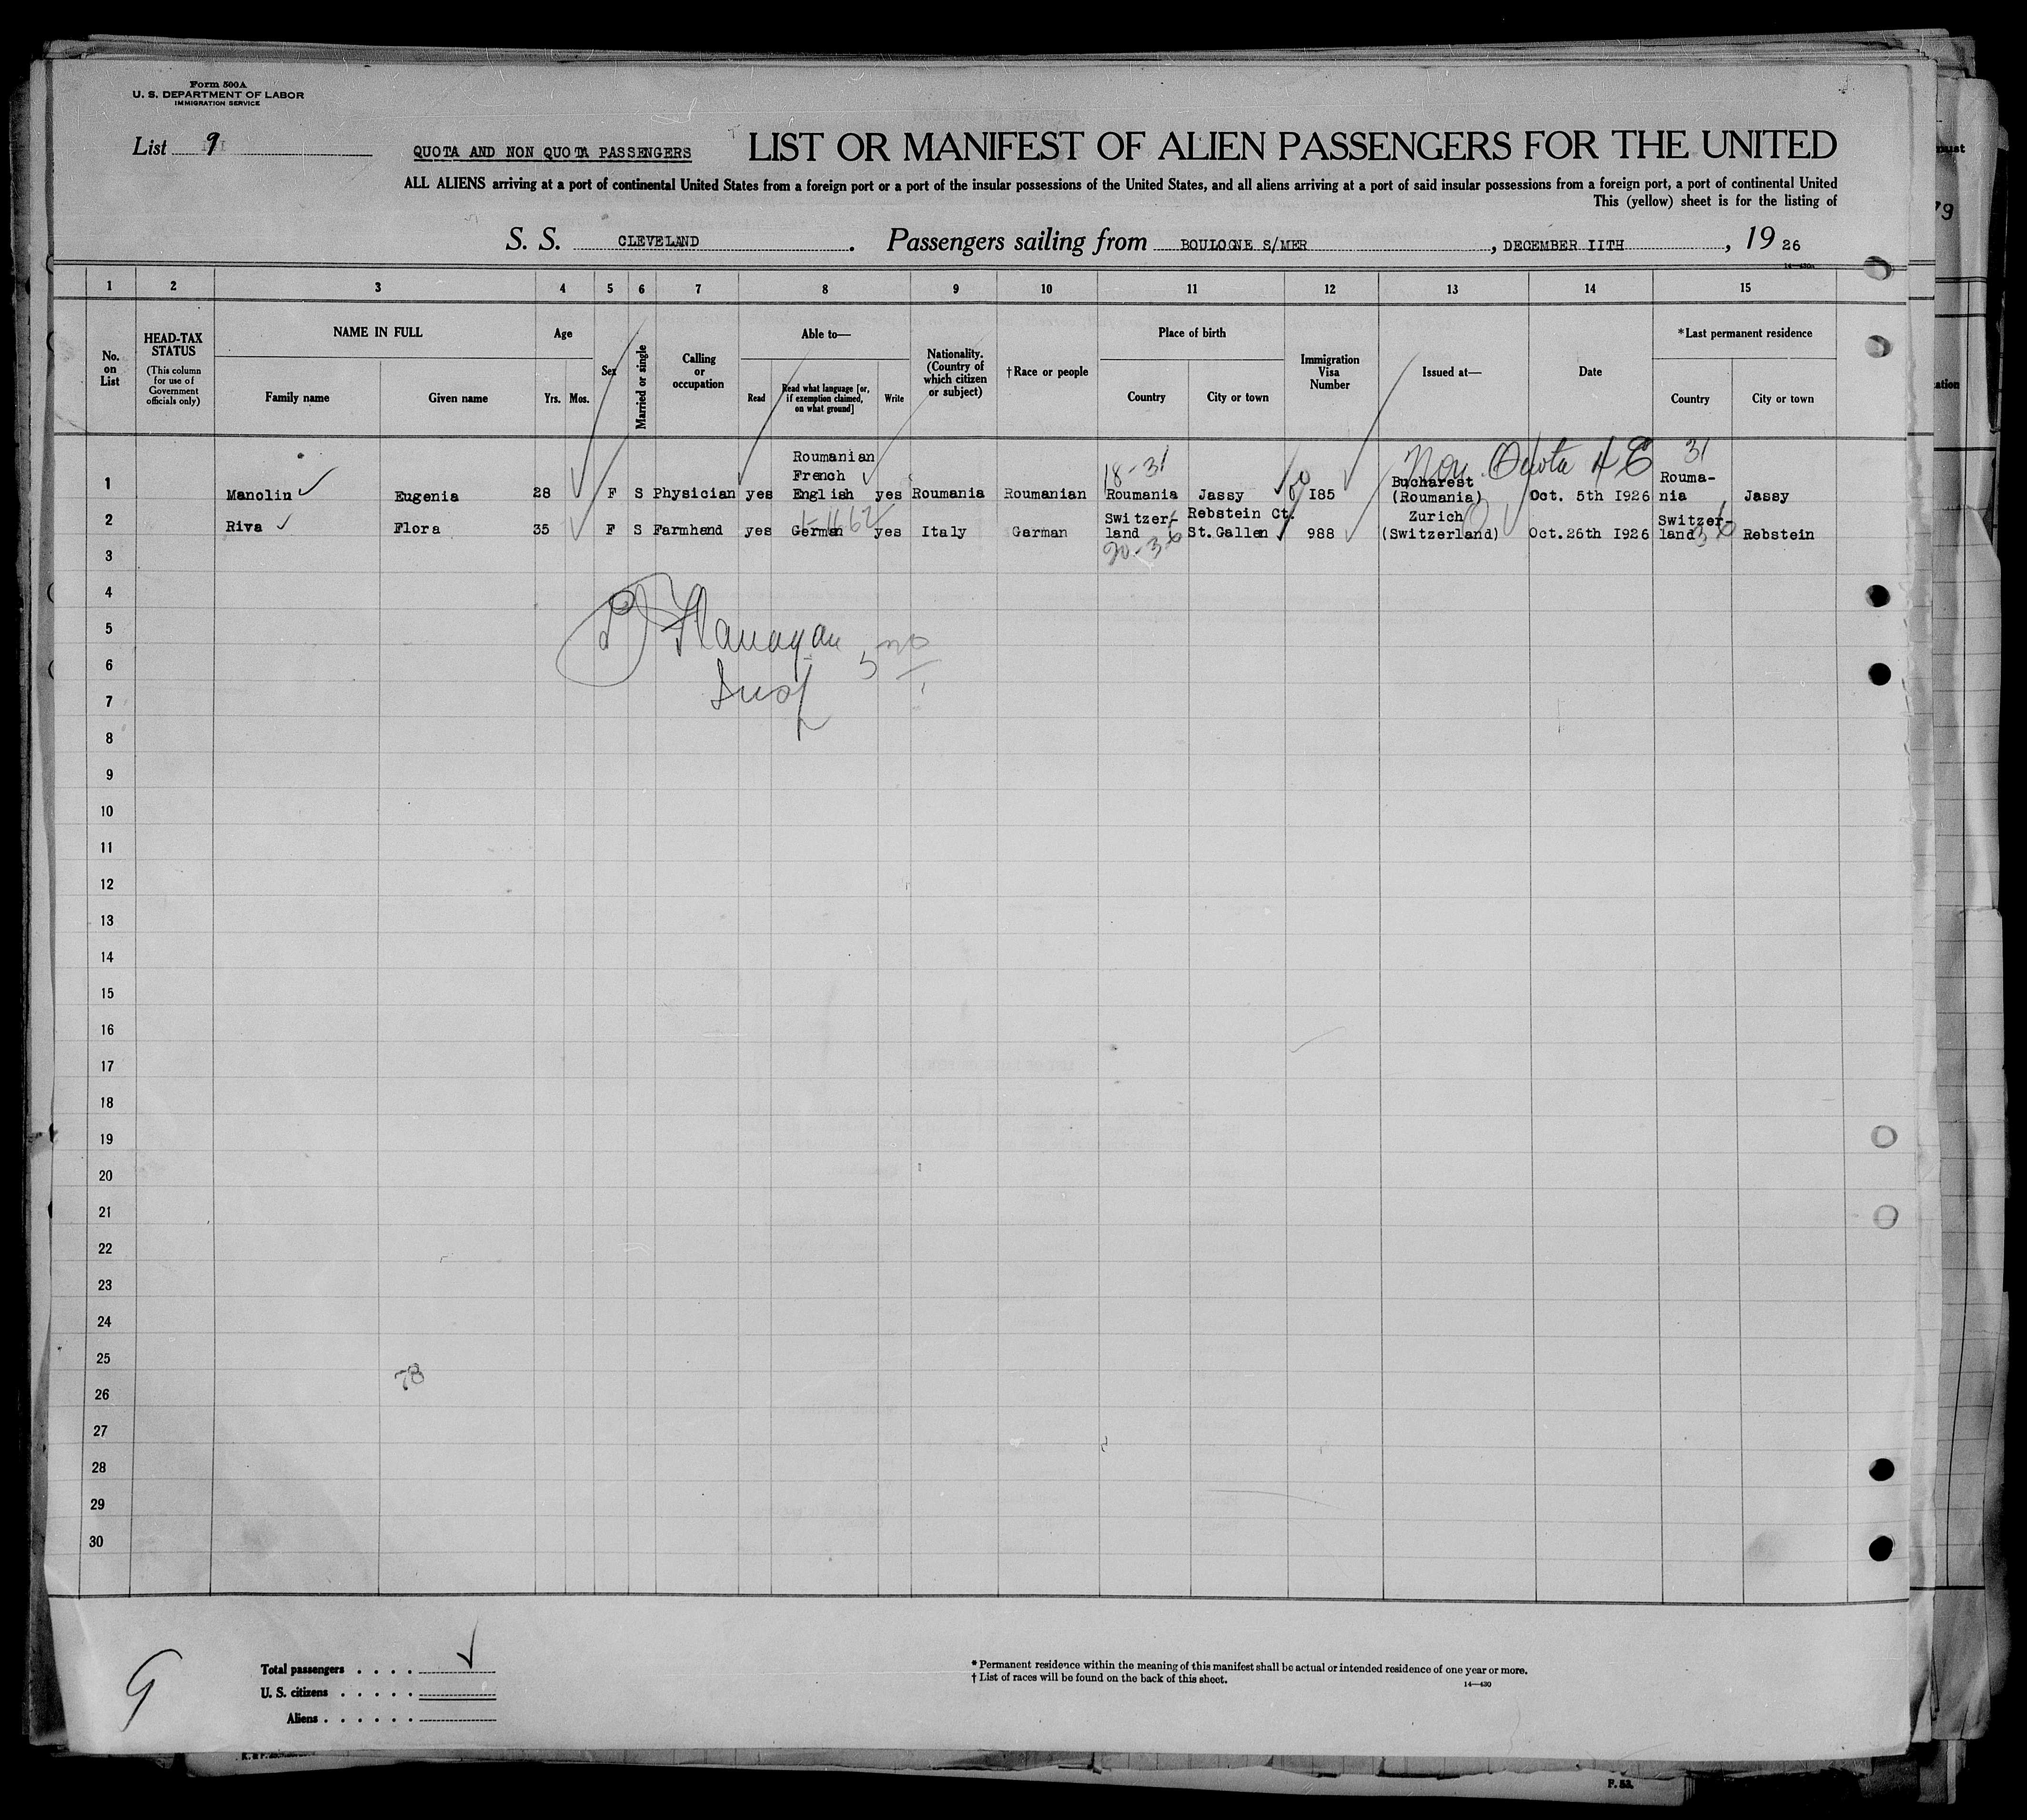 Form 500A
U. S. DEPARTMENT OF LABOR
IMMIGRATION SERVICE
List 9
QUOTA AND NON QUOTA PASSENGERS
LIST OR MANIFEST OF ALIEN PASSENGERS FOR THE UNITED
ALL ALIENS arriving at a port of continental United States from a foreign port or a port of the insular possessions of the United States, and all aliens arriving at a port of said insular possessions from a foreign port, a port of continental United
This (yellow) sheet is for the listing of
S. S. CLEVELAND. Passengers sailing from BOULOGNE S/MER, DECEMBER IITH, 19 26
14—430a
1 2 3 4 5 6 7 8 9 10 11 12 13 14 15
No. on List
HEAD-TAX STATUS
(This column for use of Government officials only)
NAME IN FULL
Family name
Given name
Age
Yrs. Mos.
Sex
Married or single
Calling or occupation
Able to—
Read
Read what language [or, if exemption claimed, on what ground]
Write
Nationality. (Country of which citizen or subject)
†Race or people
Place of birth
Country
City or town
Immigration Visa Number
Issued at—
Date
*Last permanent residence
Country
City or town
Non Quota 4 E
18-31
31
1 Manoliu Eugenia 28 F S Physician yes Roumanian French English yes Roumania Roumanian Roumania Jassy I85 Bucharest (Roumania) Oct. 5th I926 Rouma-nia Jassy
2 Riva Flora 35 F S Farmhand yes German yes Italy German Switzer-land Rebstein Ct. St.Gallen 988 Zurich (Switzerland) Oct.26th I926 Switzer-land Rebstein
20-36
36
3
4
Flanagan
5
6
Insp
7
8
9
10
11
12
13
14
15
16
17
18
19
20
21
22
23
24
25
78
26
27
28
29
30
9
Total passengers . . . .
U. S. citizens . . . . .
Aliens . . . . . .
* Permanent residence within the meaning of this manifest shall be actual or intended residence of one year or more.
† List of races will be found on the back of this sheet.
14—430
P. 53.
79